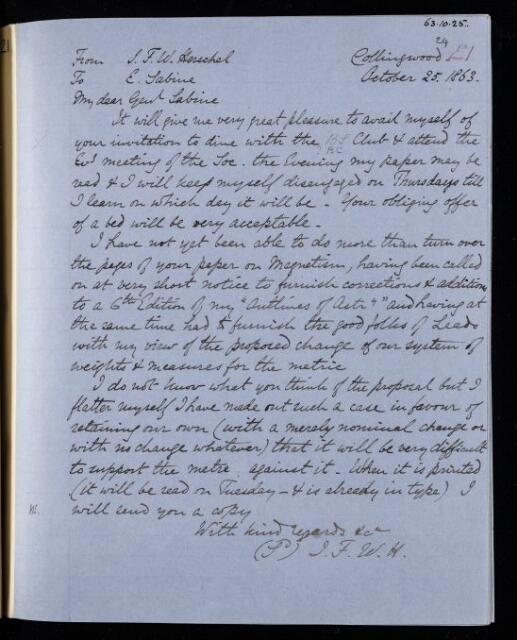 63.10.25.
24
From J. F. W. Herschel Collingwood
To E. Sabine October 25. 1863.
My dear Genl Sabine
It will give me very great pleasure to avail myself of
your invitation to dine with the Club & attend the
Evg meeting of the Soc. the Evening my paper may be
read & I will keep myself disengaged on Thursdays till
I learn on which day it will be - Your obliging offer
of a bed will be very acceptable -
I have not yet been able to do more than turn over
the pages of your paper on Magnetism, having been called
on at very short notice to furnish corrections & addition
to a 6th Edition of my "Outlines of Astr y" and having at
the same time had to furnish the good folks of Leeds
with my view of the proposed change of our system of
weights & measures for the metric
I do not know what you think of the proposal but I
flatter myself I have made out such a case in favour of
retaining our own (with a merely nominal change or
with no change whatever) that it will be very difficult
to support the metre against it - When it is printed
(it will be read on Tuesday - & is already in type) I
will send you a copy
With kind regards &c
J. F. W. H.